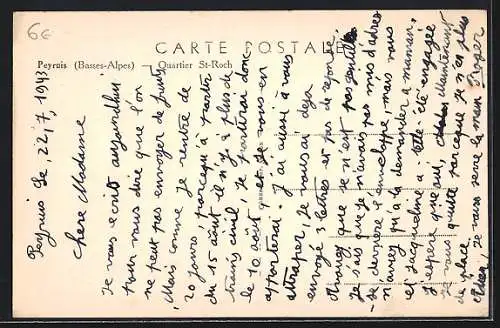 6€
CARTE POSTALE
Peyruis (Basses-Alpes) — Quartier St-Roch
Peyruis Le, 22,7,1943
Chere Madame
Je vous écrit aujourdhui
Pour vous dire que l'on
ne peut pas envoyer de fruits
Mais comme Je rentre de
20 jours, parcequ'à partir
du 15 août il n'y a plus de
trains civil, Je partirai donc
le 10 août et Je vous en
apporterai. J'ai aussi à vous
attraper, Je vous ai deja
envoyé 3 lettres et pas de reponse
trouvez que Je n'est pas gentille
Je sais que Je n'avais pas mis d'adres
-se derriere l'enveloppe, mais vous
n'aviez qu'à la demander a maman.
et Jacqueline a telle été engagée
J'espère que oui, Maintenant
Je vous quitte parceque Je n'ai plus
de place.
Je vous serre la main Roger